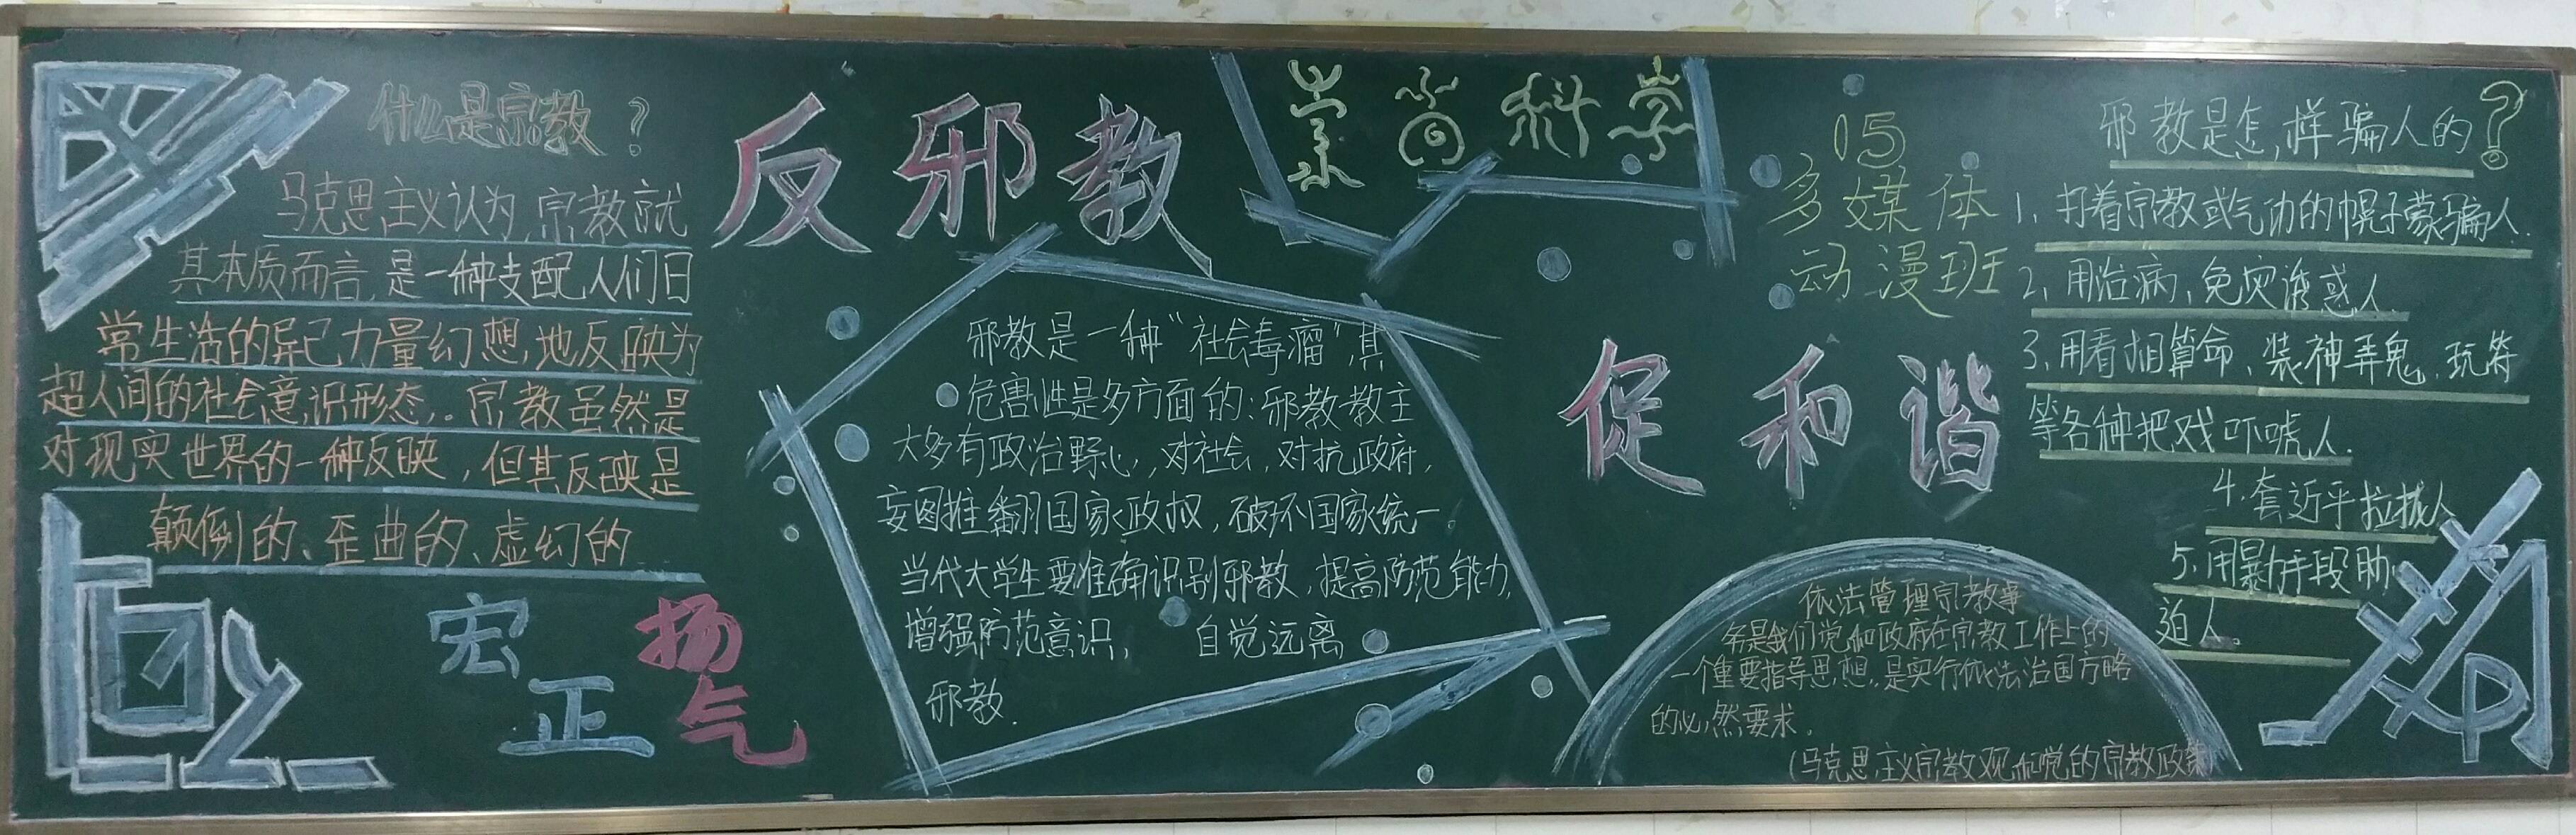 什么是宗教？
马克思主义认为,宗教就
其本质而言,是一种支配人们日
常生活的异己力量幻想,地反映为
超人间的社会意识形态。宗教虽然是
对现实世界的一种反映，但其反映是
颠倒的、歪曲的、虚幻的
宏扬
正气
反邪教
崇尚科学
邪教是一种“社会毒瘤”,其
危害性是多方面的:邪教教主
大多有政治野心,对社会,对抗政府,
妄图推翻国家政权,破坏国家统一。
当代大学生要准确识别邪教,提高防范能力,
增强防范意识, 自觉远离
邪教.
15
多媒体
动漫班
促和谐
邪教是怎样骗人的？
1、打着宗教或气功的幌子蒙骗人.
2、用治病、免灾诱惑人.
3、用看相算命、装神弄鬼、玩符
等各种把戏吓唬人.
4.套近乎拉拢人
5.用暴力手段胁
迫人。
依法管理宗教事
务是我们党和政府在宗教工作上的
一个重要指导思想,是实行依法治国方略
的必然要求。
(马克思主义宗教观和党的宗教政策)